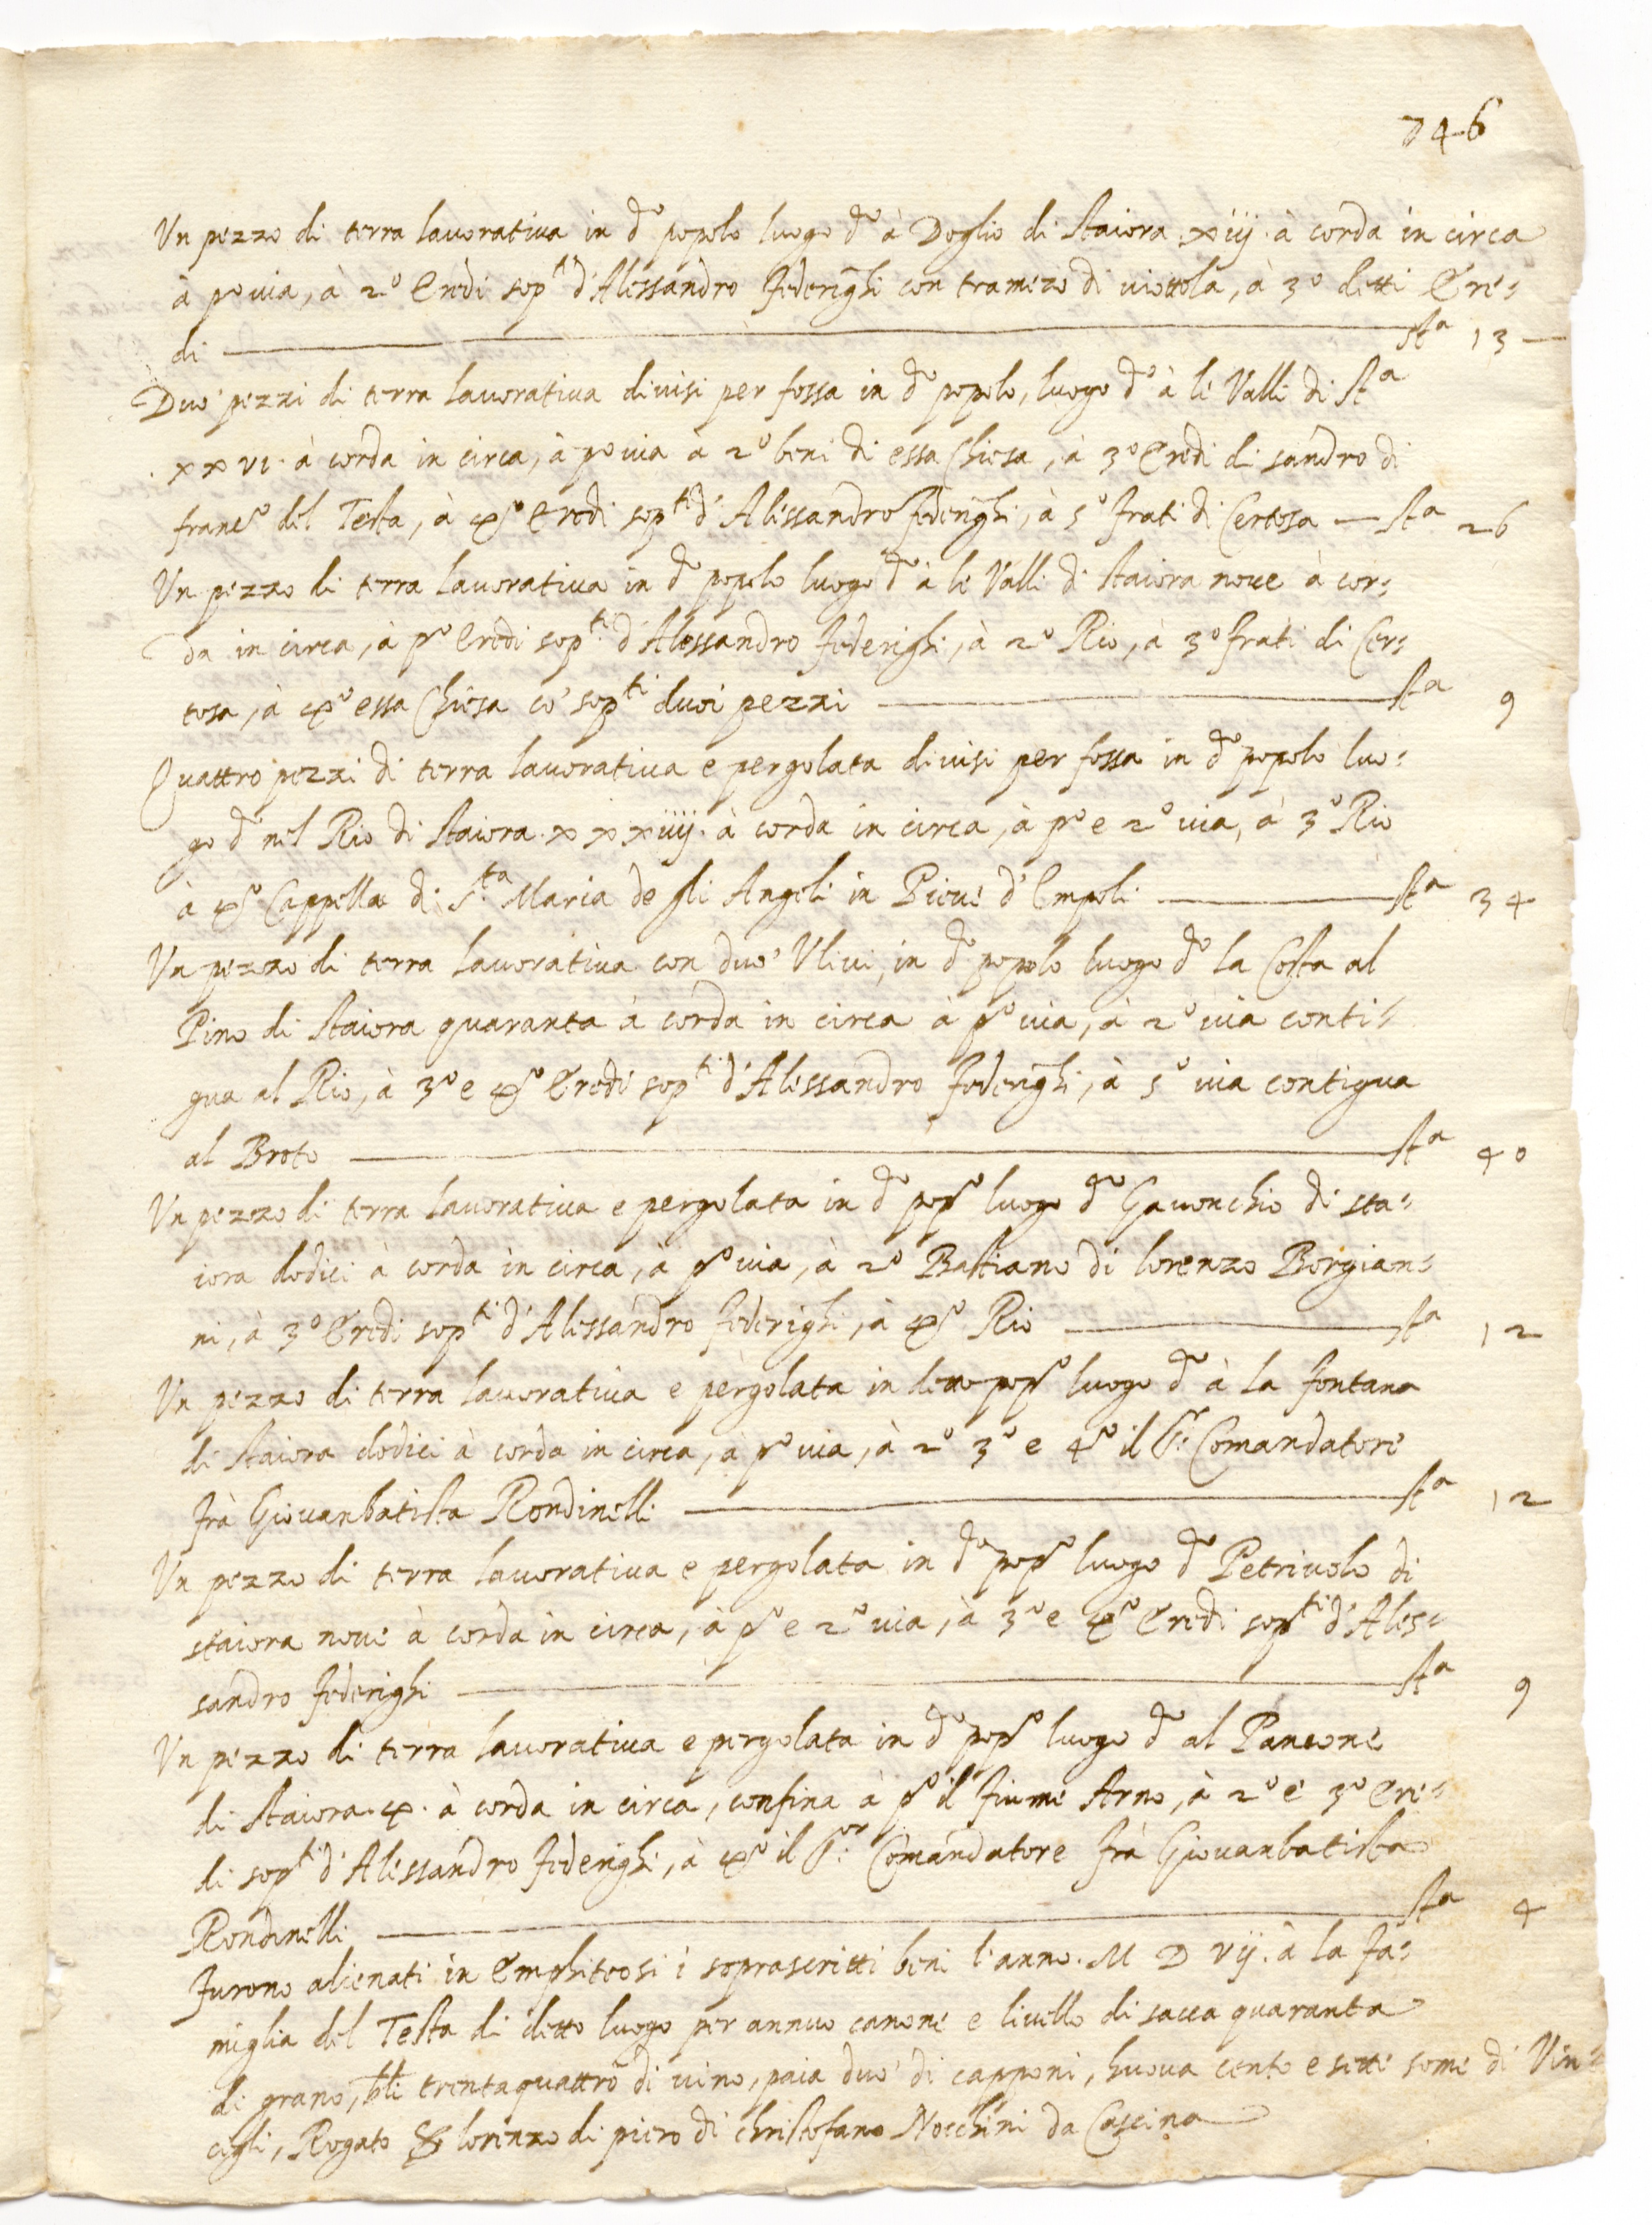 746
Un pezzo di terra lauoratiua in d.º popolo luogo d.º à Doglio di staiora xiij. à corda in circa
à pº uia, à 2º Eredi sopti d'Alessandro Federighi con tramezo di uiottola, à 3º detti Ere-
di —— Sta 13 —
Duo pezzi di terra lauoratiua diuisi per fossa in dº popolo, luogo dº à le Valli di Sta
xxvi. à corda in circa, à pº uia à 2º beni di essa Chiesa, à 3º Eredi di sandro di
francº del Testa, à 4º Eredi sopti d'Alessandro Federighi, à 5º frati di Certosa — Sta 26
Un pezzo di terra lauoratiua in dº popolo luogo dº à le Valli di staiora noue à cor-
da in circa, à pº Eredi sopti d'Alessandro Federighi, à 2º Rio, à 3º frati di Cer-
tosa, à 4º essa Chiesa co' sopti duoi pezzi —— Sta 9
Quattro pezzi di terra lauoratiua e pergolata diuisi per fossa in dº popolo luo-
go dº nel Rio di staiora. xxxiiij. à corda in circa, à pº e 2º uia, à 3º Rio
à 4º Cappella di S.ta Maria de gli Angeli in Pieue d'Empoli —— Sta 34
Un pezzo di terra lauoratiua con duo' Uliui, in dº popolo luogo dº la Costa al
Pino di staiora quaranta à corda in circa à pº uia, à 2º uia conti-
gua al Rio, à 3º e 4º Eredi sopti d'Alessandro Federighi, à 5º uia contigua
al Broto —— Sta 40
Un pezzo di terra lauoratiua e pergolata in dº popº luogo dº Gauonchio di sta-
iora dodici à corda in circa, à pº uia, à 2º Bastiano di lorenzo Borgian-
ni, à 3º Eredi sopti d'Alessandro Federighi, à 4º Rio —— Sta 12
Un pezzo di terra lauoratiua e pergolata in detto popº luogo dº à la fontana
di staiora dodici à corda in circa, à pº uia, à 2º 3º e 4º il S.r Comandatore
Frà Giouanbatista Rondinelli —— Sta 12
Un pezzo di terra lauoratiua e pergolata in dº popº luogo dº Petriuolo di
staiora noue à corda in circa, à pº e 2º uia, à 3º e 4º Eredi sopti d'Ales-
sandro Federighi —— Sta 9
Un pezzo di terra lauoratiua e pergolata in dº popº luogo dº al Pancone
di staiora. 4. à corda in circa, confina à pº il fiume Arno, à 2º e 3º Ere-
di sopti d'Alessandro Federighi, à 4º il S.or Comandatore Frà Giouanbatista
Rondinelli —— Sta 4
Furono alienati in Emphiteosi i soprascritti beni l'anno. M D vij. à la fa-
miglia del Testa di detto luogo per annuo canone e liuello di sacca quaranta
di grano, bli trentaquattro di uino, paia duo' di capponi, huoua cento e sette some di Vin-
cigli, Rogato Sr lorenzo di piero di christofano Nocchini da Cascina